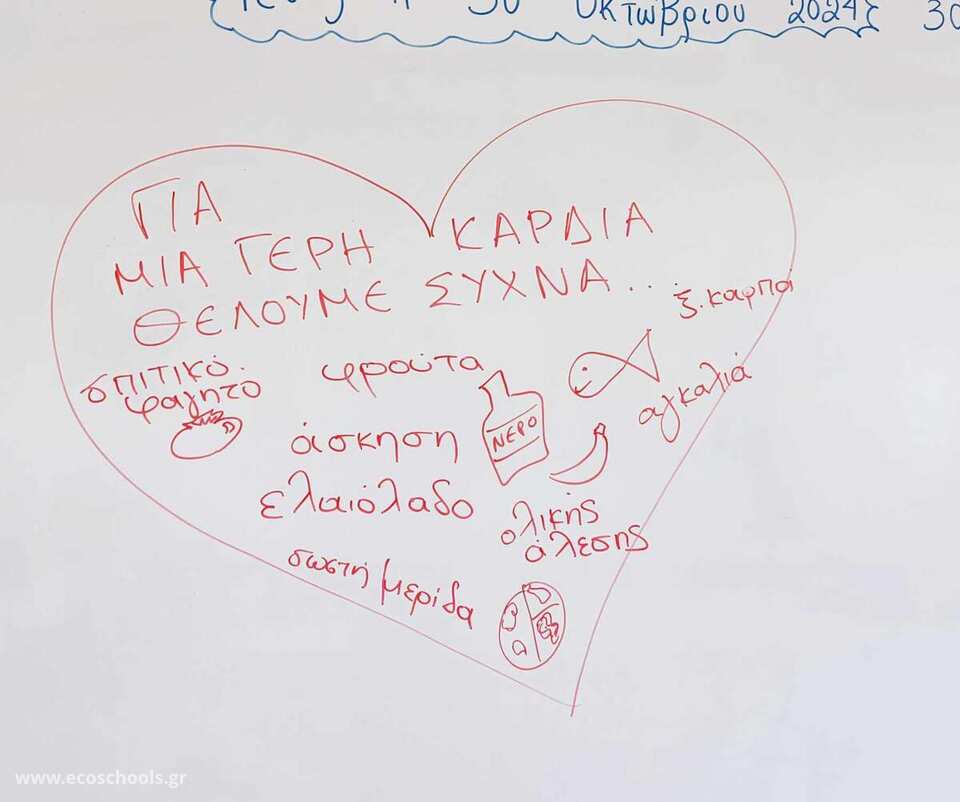 30 Οκτωβρίου 2024 30
ΓΙΑ
ΜΙΑ ΓΕΡΗ ΚΑΡΔΙΑ
ΘΕΛΟΥΜΕ ΣΥΧΝΑ...
ξ. καρποί
σπιτικό
φαγητό
φρούτα
αγκαλιά
άσκηση
ΝΕΡΟ
ελαιόλαδο
ολικής
άλεσης
σωστή μερίδα
www.ecoschools.gr